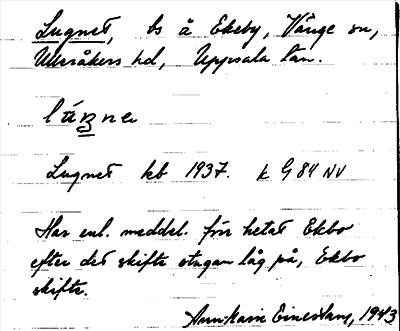 Lugnet, ls å Ekeby, Vänge sn,
Ulleråkers hd, Uppsala län.
Lugnet kb 1937. k G 84 NV
Har enl. meddel. förr hetat Ekbo
efter det skifte stugan låg på, Ekbo
skifte.
Ann-Marie 1943